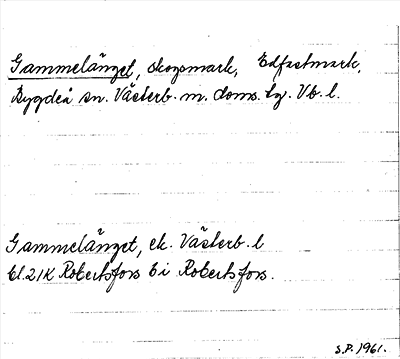 Gammelänget, skogsmark, Edfastmark,
Bygdeå sn. Västerb. m. doms. tg. Vb. l.
Gammelänget, ek. Västerb. l
bl. 21K Robertsfors b i Robertsfors.
S.P. 1961.